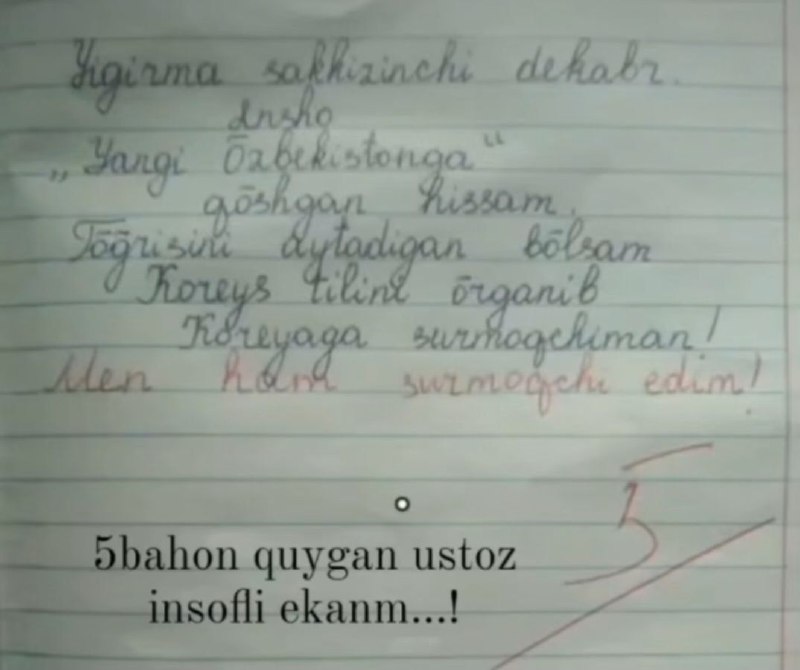 Yigirma sakkizinchi dekabr.
Insho
„Yangi Ōzbekistonga“
qōshgan hissam.
Tōḡrisini aytadigan bōlsam
Koreys tilini ōrganib
Koreyaga surmoqchiman!
Men ham surmoqchi edim!
5
5bahon quygan ustoz
insofli ekanm...!